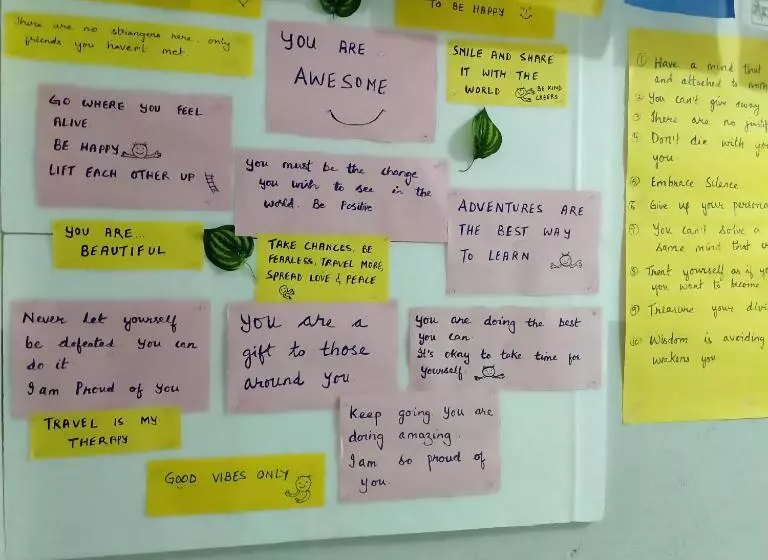 TO BE HAPPY
There are no strangers here, only
friends you haven't met.
YOU ARE...
AWESOME
SMILE AND SHARE
IT WITH THE
WORLD
BE KIND
CHEERS
GO WHERE YOU FEEL
ALIVE
BE HAPPY
LIFT EACH OTHER UP
you must be the change
you wish to see in the
world. Be Positive
ADVENTURES ARE
THE BEST WAY
TO LEARN
YOU ARE...
BEAUTIFUL
TAKE CHANCES, BE
FEARLESS, TRAVEL MORE,
SPREAD LOVE & PEACE
Never let yourself
be defeated. you can
do it.
I am Proud of you
you are a
gift to those
around you.
you are doing the best
you can.
It's okay to take time for
yourself.
TRAVEL IS MY
THERAPY
Keep going you are
doing amazing.
I am so proud of
you.
GOOD VIBES ONLY
① Have a mind that
and attached to
② You can't give away
③ There are no
Don't die with
you.
Embrace Silence.
Give up your
⑦ You can't solve a
same mind that
⑧ Treat yourself as if
you want to become
⑨ Treasure your
⑩ Wisdom is avoiding
weakens you.